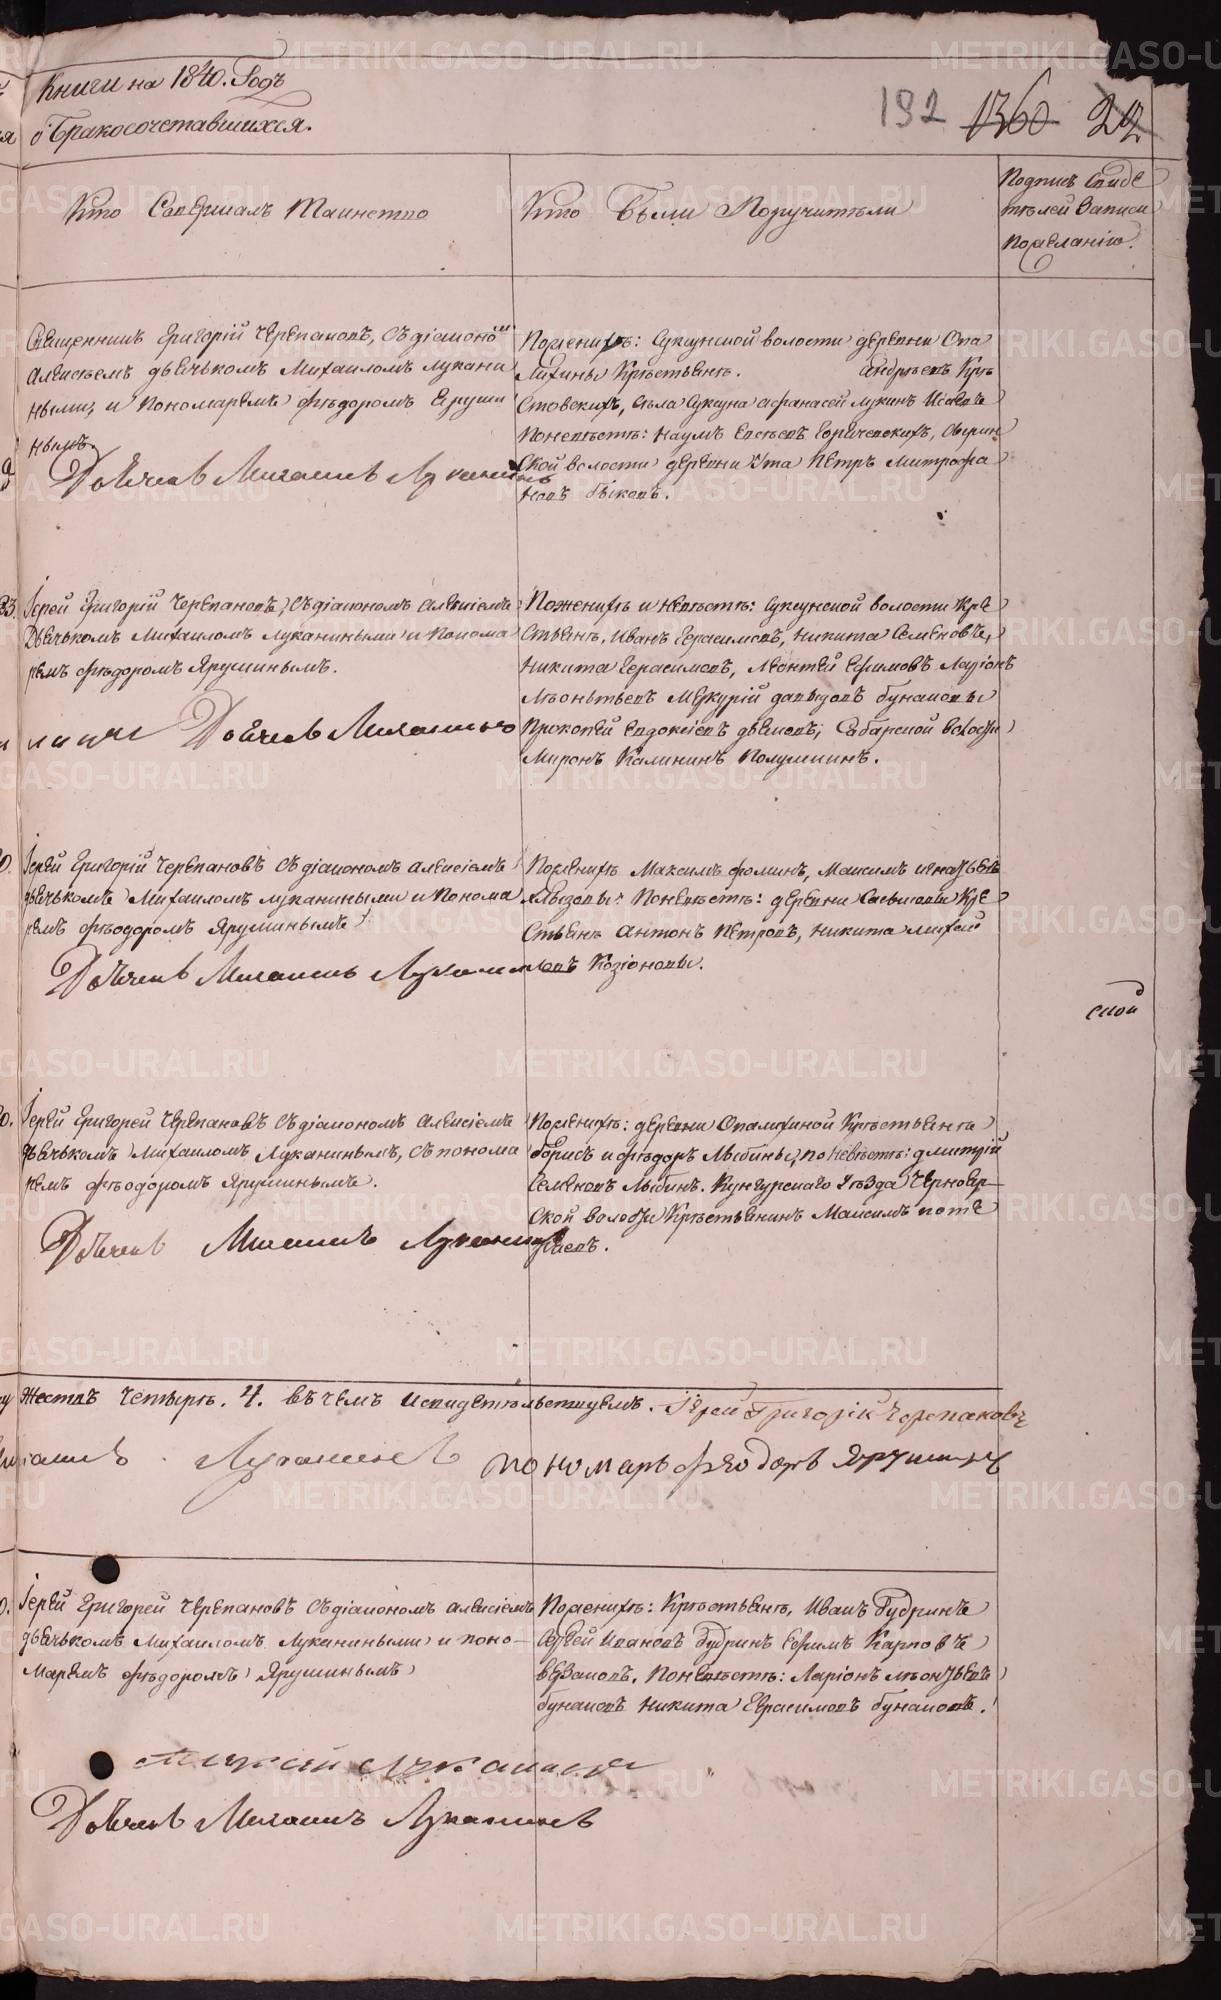 Книги на 1840. Годъ
о Бракосочетавшихся.
192 1360 22
Кто Совершалъ Таинство
Кто Были Поручители
Подпись Свиде
тѣлей Записи
По желанію.
Священникъ Григорій Черепановъ, Съ діакономъ
Алексѣемъ дьячькомъ Михаиломъ Лукани
нымъ, и Пономаремъ Фѣдоромъ Еруши
нымъ.
Дьячекъ Михаилъ Луканинъ
По женихѣ: Суксунской волости деревни Опа
лихины Крѣстьянѣ. Андрѣевъ Кре
Стовскихъ, Села Суксуна Афанасей Лукинъ Исаевъ
По невѣстѣ: Наумъ Евсѣевъ
Ской волости деревни Ута Петръ Митрофа
новъ быковъ.
Іерей Григорій Черепановъ, Съ діакономъ Алексіемъ
Дьячькомъ Михаиломъ Луканинымъ и Понома
ремъ Фѣдоромъ Ярушинымъ.
Дьячекъ Михаилъ
По женихѣ и невѣстѣ: Суксунской волости Кре
Стьянѣ, Иванъ Герасимовъ, Никита Семеновъ,
Никита Герасимовъ, Леонтей Ефимовъ Ларіонъ
Лѣонтьевъ Меркурій давыдовъ бунаковы
Прокопей Евдокіевъ дьяковъ, Сабарской волости
Миронъ Калининъ Полушкинъ.
Іерей Григорій Черепановъ Съ діакономъ Алексіемъ
дьячькомъ Михаиломъ Луканинымъ и Понома
ремъ Фѣодоромъ Ярушинымъ
Дьячекъ Михаилъ Луканинъ
По женихѣ Максимъ Фоминъ, Максимъ Игнатьевъ
По невѣстѣ: деревни Кре
Стьянъ Антонъ Петровъ, Никита Михай
ловъ Козіоновы.
ской
Іерей Григорей Черепановъ Съ діакономъ Алексіемъ
дьячькомъ Михаиломъ Луканинымъ, Съ понома
ремъ Фѣодоромъ Ярушинымъ.
Дьячекъ Михаилъ Луканинъ
По женихѣ: деревни Опалихиной Крѣстьянѣ
борисъ и Фѣдоръ Лыбины, по невѣстѣ: дмитрій
Семеновъ Лыбинъ. Кунгурскаго Уѣзда Чернояр-
Ской волости Крѣстьянинъ Максимъ
жествъ Четырѣ. 4. въ чемъ и свидѣтѣльствуемъ. Іерей Григорій Черепановъ
Луканинъ пономарь Фѣодоръ Ярушинъ
Іерей Григорей Черепановъ Съ діакономъ Алексіемъ
дьячькомъ Михаиломъ Луканинымъ и поно-
маремъ Фѣдоромъ Ярушинымъ
Дьячекъ Михаилъ Луканинъ
По женихѣ: Крѣстьянѣ, Иванъ Бубринъ
Сергей Ивановъ бубринъ Ефимъ Карповъ
По невѣстѣ: Ларіонъ Лѣонтьевъ
бунаковъ Никита Герасимовъ бунаковъ.
METRIKI.GASO-URAL.RU